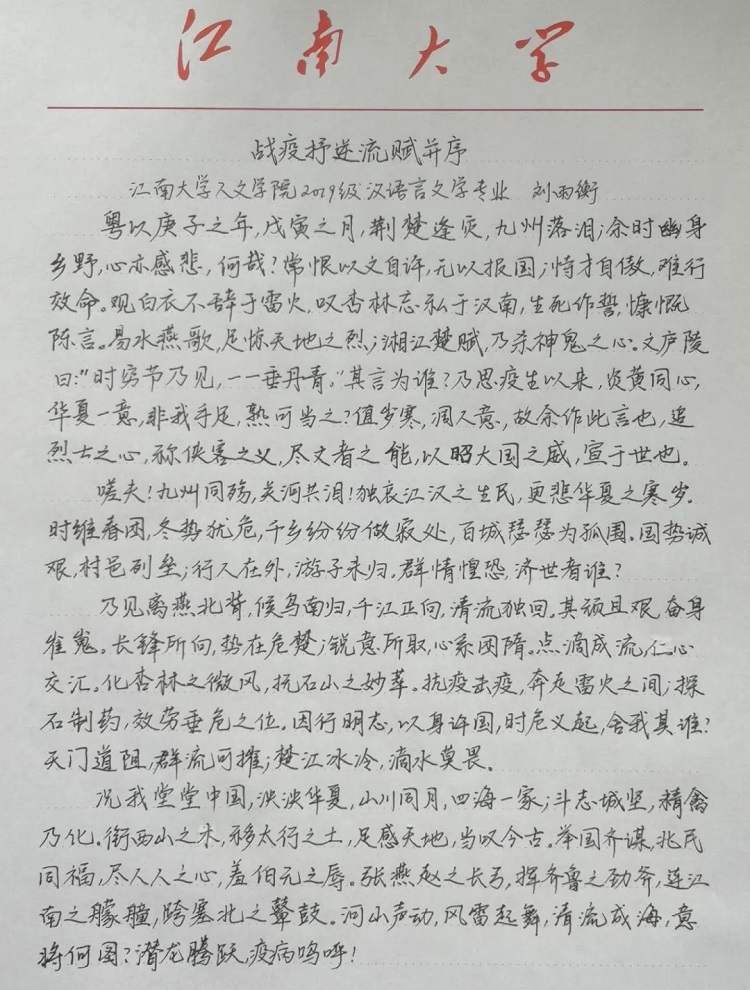 江南大学
战疫抒逆流赋并序
江南大学人文学院2019级汉语言文学专业 刘雨衡
粤以庚子之年,戊寅之月,荆楚逢灾,九州落泪;余时幽身
乡野,心亦感悲,何哉?常恨以文自许,无以报国;恃才自傲,难行
效命。观白衣不辞于雷火,叹杏林忘私于汉南,生死作誓,慷慨
陈言。易水燕歌,足惊天地之烈;湘江楚赋,乃杀神鬼之心。文庐陵
曰:“时穷节乃见,一一垂丹青。”其言为谁?乃思疫生以来,炎黄同心,
华夏一意,非我手足,孰可当之?值岁寒,润人意,故余作此言也,追
烈士之心,称侠客之义,尽丈者之能,以昭大国之威,宣于世也。
嗟夫!九州同殇,关河共泪!独哀江汉之生民,更悲华夏之寒岁。
时维春困,冬势犹危,千乡纷纷做寂处,百城瑟瑟为孤围。国势诚
艰,村邑列垒;行人在外,游子未归。群情惶恐,济世者谁?
乃见离燕北背,候鸟南归,千江正向,清流独回。其顽且艰,奋身
崔嵬。长锋所向,势在危楚;锐意所取,心系困隋。点滴成流,仁心
交汇。化杏林之微风,抚石山之妙萃。抗疫击疫,奔走雷火之间;探
石制药,效劳垂危之位。因行明志,以身许国,时危义起,舍我其谁?
天门道阻,群流可摧;楚江冰冷,滴水莫畏。
况我堂堂中国,泱泱华夏,山川同月,四海一家;斗志城坚,精禽
乃化。衔西山之木,移太行之土,足感天地,当叹今古。举国齐谋,兆民
同福,尽人人之心,羞伯元之辱。张燕赵之长弓,挥齐鲁之劲斧,连江
南之艨艟,跨塞北之鼙鼓。河山声动,风雷起舞,清流成海,意
将何图?潜龙腾跃,疫病呜呼!